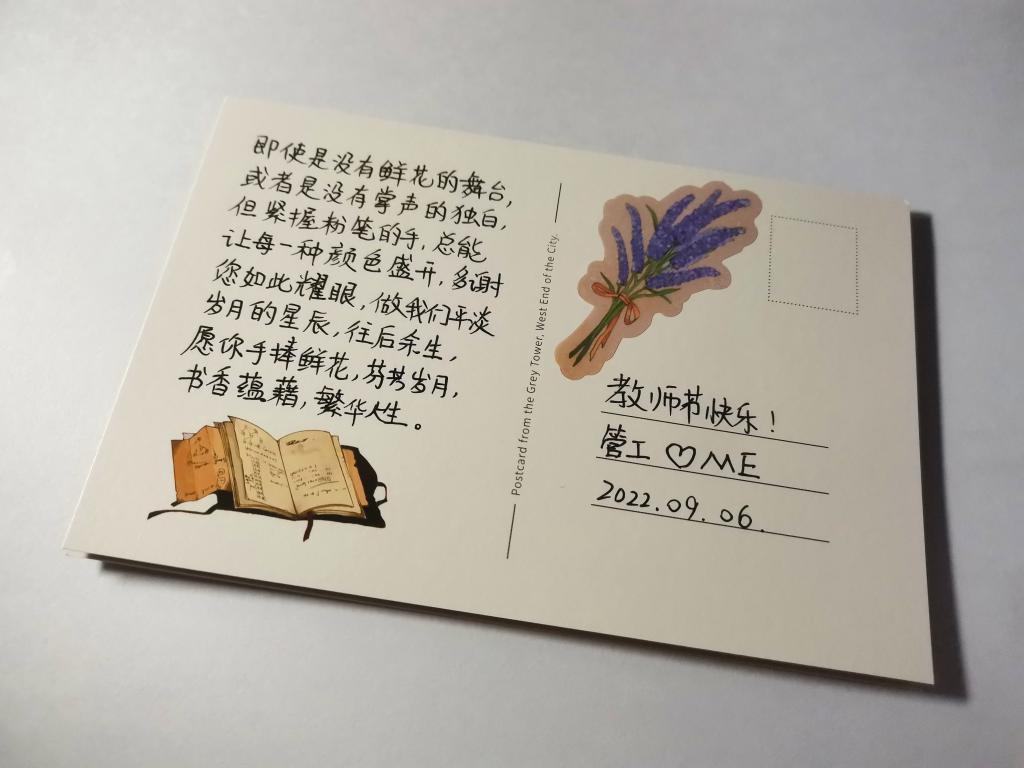 即使是没有鲜花的舞台,
或者是没有掌声的独白,
但紧握粉笔的手,总能
让每一种颜色盛开,多谢
您如此耀眼,做我们平淡
岁月的星辰,往后余生,
愿你手捧鲜花,芬芳岁月,
书香蕴藉,繁华人生。
Postcard from the Grey Tower, West End of the City.
教师节快乐!
管工♡ME
2022.09.06.